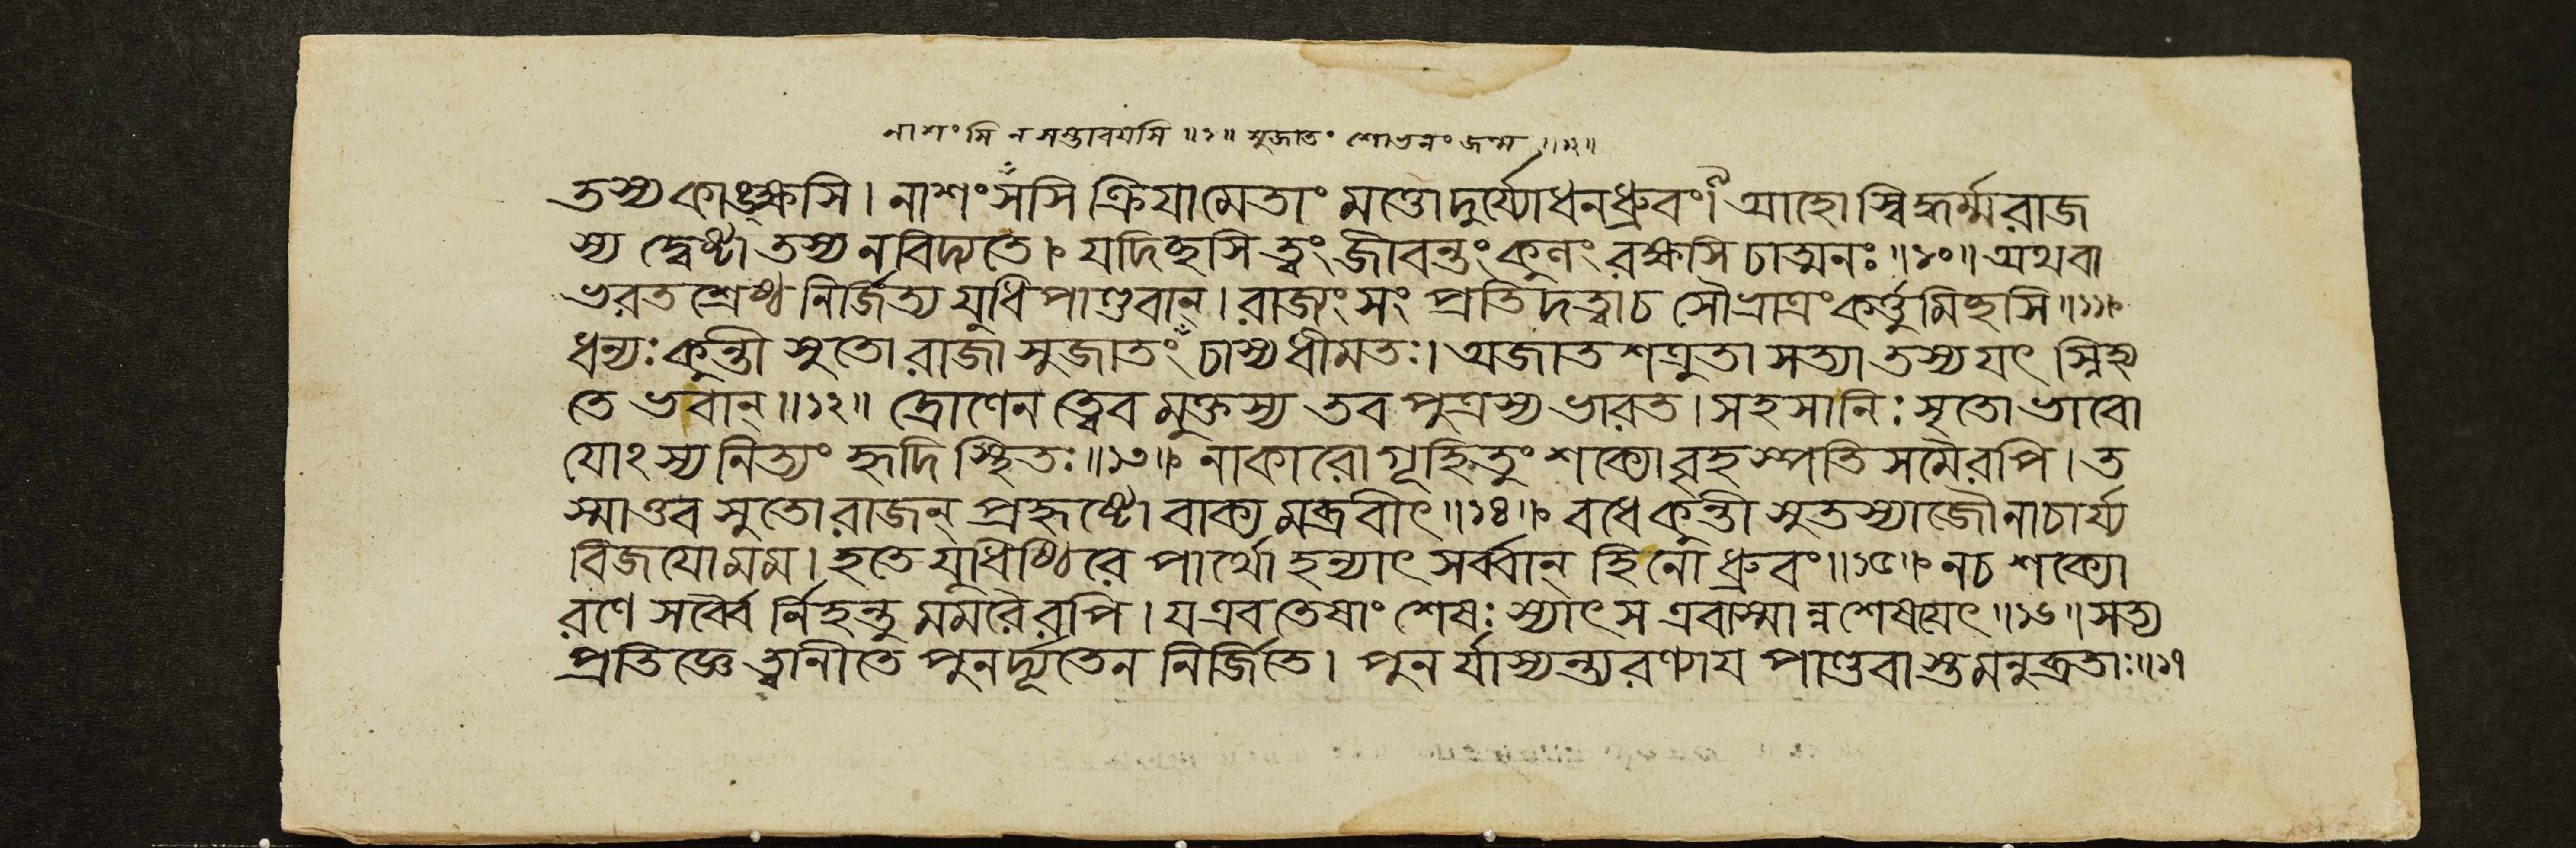 নাশংসি ন সম্ভাবয়সি ॥১॥ সুজাতং শোভনং জন্ম ॥২॥
তস্য কাঙ্ক্ষসি। নাশংসসি ক্রিয়ামেতাং মত্তো দুর্য্যোধন ধ্রুবং। আহোস্বিদ্ধর্ম্মরাজ
স্য দ্বেষ্টা তস্য ন বিদ্যতে। যদিচ্ছসি ত্বং জীবন্তং কুলং রক্ষসি চাত্মনঃ॥১০॥ অথবা
ভরতশ্রেষ্ঠ নির্জিত্য যুধি পাণ্ডবান্। রাজ্যং সংপ্রতি দত্ত্বা চ সৌভ্রাত্রং কর্ত্তুমিচ্ছসি॥১১॥
ধন্যঃ কুন্তীসুতো রাজা সুজাতং চাস্য ধীমতঃ। অজাতশত্রুতা সত্যা তস্য যৎ স্নিহ্য
তে ভবান্॥১২॥ দ্রোণেন ত্বেবমুক্তস্য তব পুত্রস্য ভারত। সহসা নিঃসৃতো ভাবো
যোঽস্য নিত্যং হৃদি স্থিতঃ॥১৩॥ নাকারো গূহিতুং শক্যো বৃহস্পতিসমৈরপি। ত
স্মাত্তব সুতো রাজন্ প্রহৃষ্টো বাক্যমব্রবীৎ॥১৪॥ বধে কুন্তীসুতস্যাজৌ নাচার্য্য
বিজয়ো মম। হতে যুধিষ্ঠিরে পার্থো হন্যাৎ সর্ব্বান্ হি নো ধ্রুবং॥১৫॥ ন চ শক্যো
রণে সর্ব্বৈর্নিহন্তুমমরৈরপি। য এব তেষাং শেষঃ স্যাৎ স এবাস্মান্ন শেষয়েৎ॥১৬॥ সত্য
প্রতিজ্ঞে ত্বানীতে পুনর্দ্যূতেন নির্জিতে। পুনর্যাস্যন্ত্যরণ্যায় পাণ্ডবাস্তমনুব্রতাঃ॥১৭